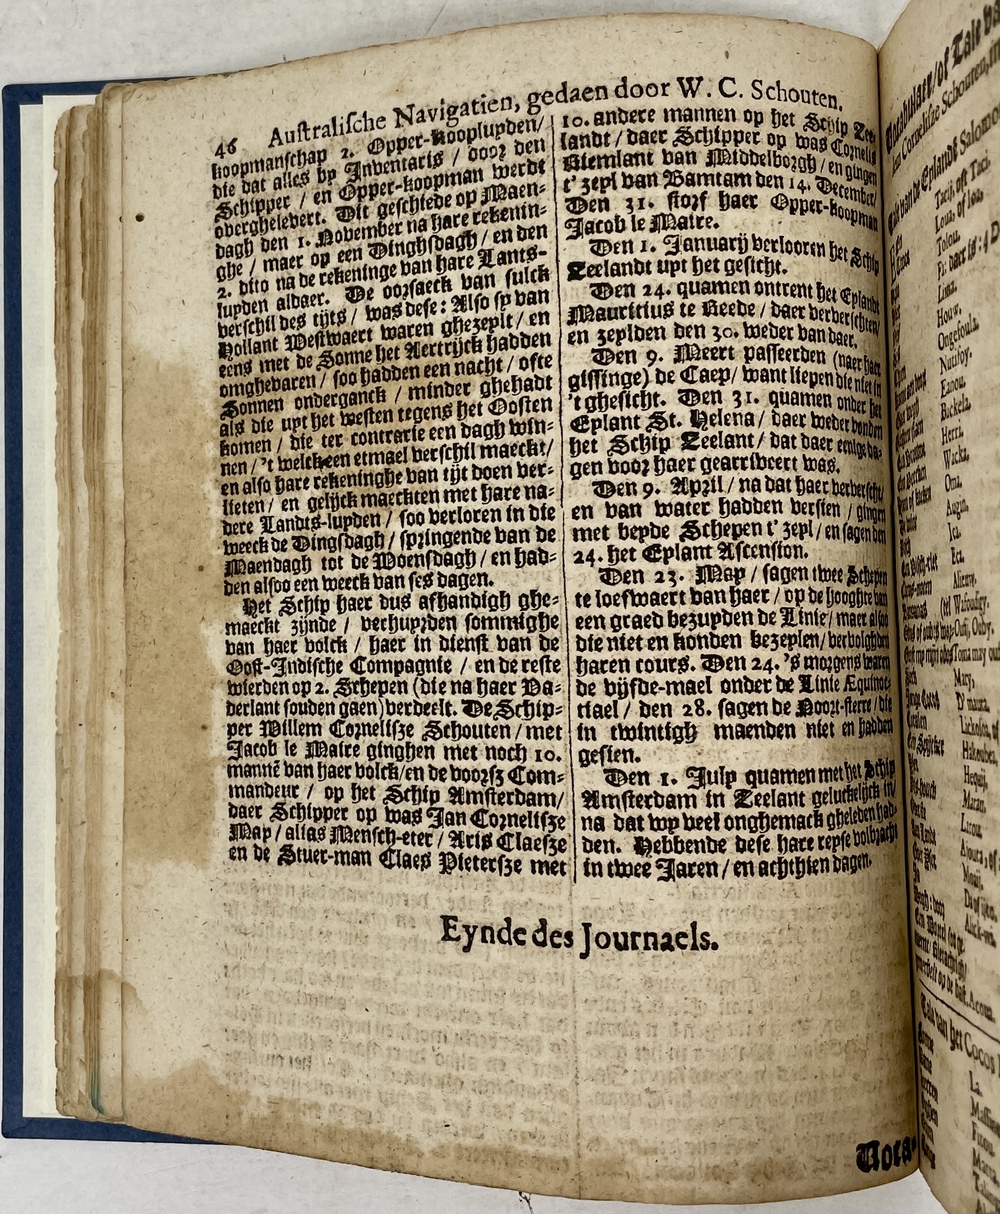 46 Australische Navigatien, gedaen door W. C. Schouten.
koopmanschap 2. Opper-kooplupden/
die dat alles by Inventaris / door den
Schipper / en Opper-koopman werdt
overghelevert. Dit geschiede op Maen-
dagh den 1. November na hare rekenin-
ghe / maer op een Dinghsdagh / en den
2. dito na de rekeninge van hare Lants-
luyden aldaer. De oorsaeck van sulck
verschil des tijts / was dese: Also sy van
Hollant Westwaert waren ghezeylt / en
eens met de Sonne het Aertrijck hadden
omghevaren / soo hadden een nacht / ofte
Sonnen onderganck / minder ghehadt
als die uyt het westen tegens het Oosten
komen / die ter contrarie een dagh win-
nen / 't welck een etmael verschil maeckt/
en also hare rekeninghe van tijt doen ver-
lieten / en gelijck maeckten met hare na-
dere Landts-luyden / soo verloren in die
weeck de Dingsdagh / springende van de
Maendagh tot de Woensdagh / en had-
den alsoo een weeck van ses dagen.
Het Schip haer dus afhandigh ghe-
maeckt zijnde / verhuyrden sommighe
van haer volck / haer in dienst van de
Oost-Indische Compagnie / en de reste
wierden op 2. Schepen (die na haer Va-
derlant souden gaen) verdeelt. De Schip-
per Willem Cornelisze Schouten / met
Jacob le Maire ginghen met noch 10.
mannē van haer volck/en de voorsz Com-
mandeur / op het Schip Amsterdam/
daer Schipper op was Jan Cornelisze
May / alias Mensch-eter / Aris Claesze
en de Stuer-man Claes Pietersze met
10. andere mannen op het Schip Zee-
landt / daer Schipper op was Cornelis
Riemlant van Middelborgh / en gingen
t' zeyl van Bamtam den 14. December/
Den 31. storf haer Opper-koopman
Jacob le Maire.
Den 1. Januarij verlooren het Schip
Zeelandt uyt het gesicht.
Den 24. quamen ontrent het Eylandt
Mauritius te Reede / daer ververschten/
en zeylden den 30. weder van daer.
Den 9. Meert passeerden (naer hare
gissinge) de Caep / want liepen die niet in
't ghesicht. Den 31. quamen onder het
Eylant St. Helena / daer weder vonden
het Schip Zeelant / dat daer eenige da-
gen voor haer gearriveert was.
Den 9. April / na dat haer ververscht/
en van water hadden versien / gingen
met beyde Schepen t' zeyl / en sagen den
24. het Eylant Ascension.
Den 23. May / sagen twee Schepen
te loefwaert van haer / op de hooghte van
een graed bezuyden de Linie / maer alsoo
die niet en konden bezeylen / vervolghden
haren cours. Den 24. 's morgens waren
de vijfde-mael onder de Linie Æquinoc-
tiael / den 28. sagen de Noort-sterre / die
in twintigh maenden niet en hadden
gesien.
Den 1. July quamen met het Schip
Amsterdam in Zeelant geluckelijck in/
na dat wy veel onghemack gheleden had-
den. Hebbende dese hare reyse volbracht
in twee Jaren / en achthien dagen.
Eynde des Journaels.
Voca-
Vocabulaer / of Tale
Cornelisze Schouten,
van de Eylandt Salomo
Tacij, oft Taci.
Lou, of lou
Tolou.
Lima.
Houw.
Ongefoula.
Nuttafoy.
Eanou.
Backela.
Herri.
Wacka.
Ona.
Augin.
Ica.
Eca.
Mary,
Hequij,
Maran.
Tale van het Cocos
La.